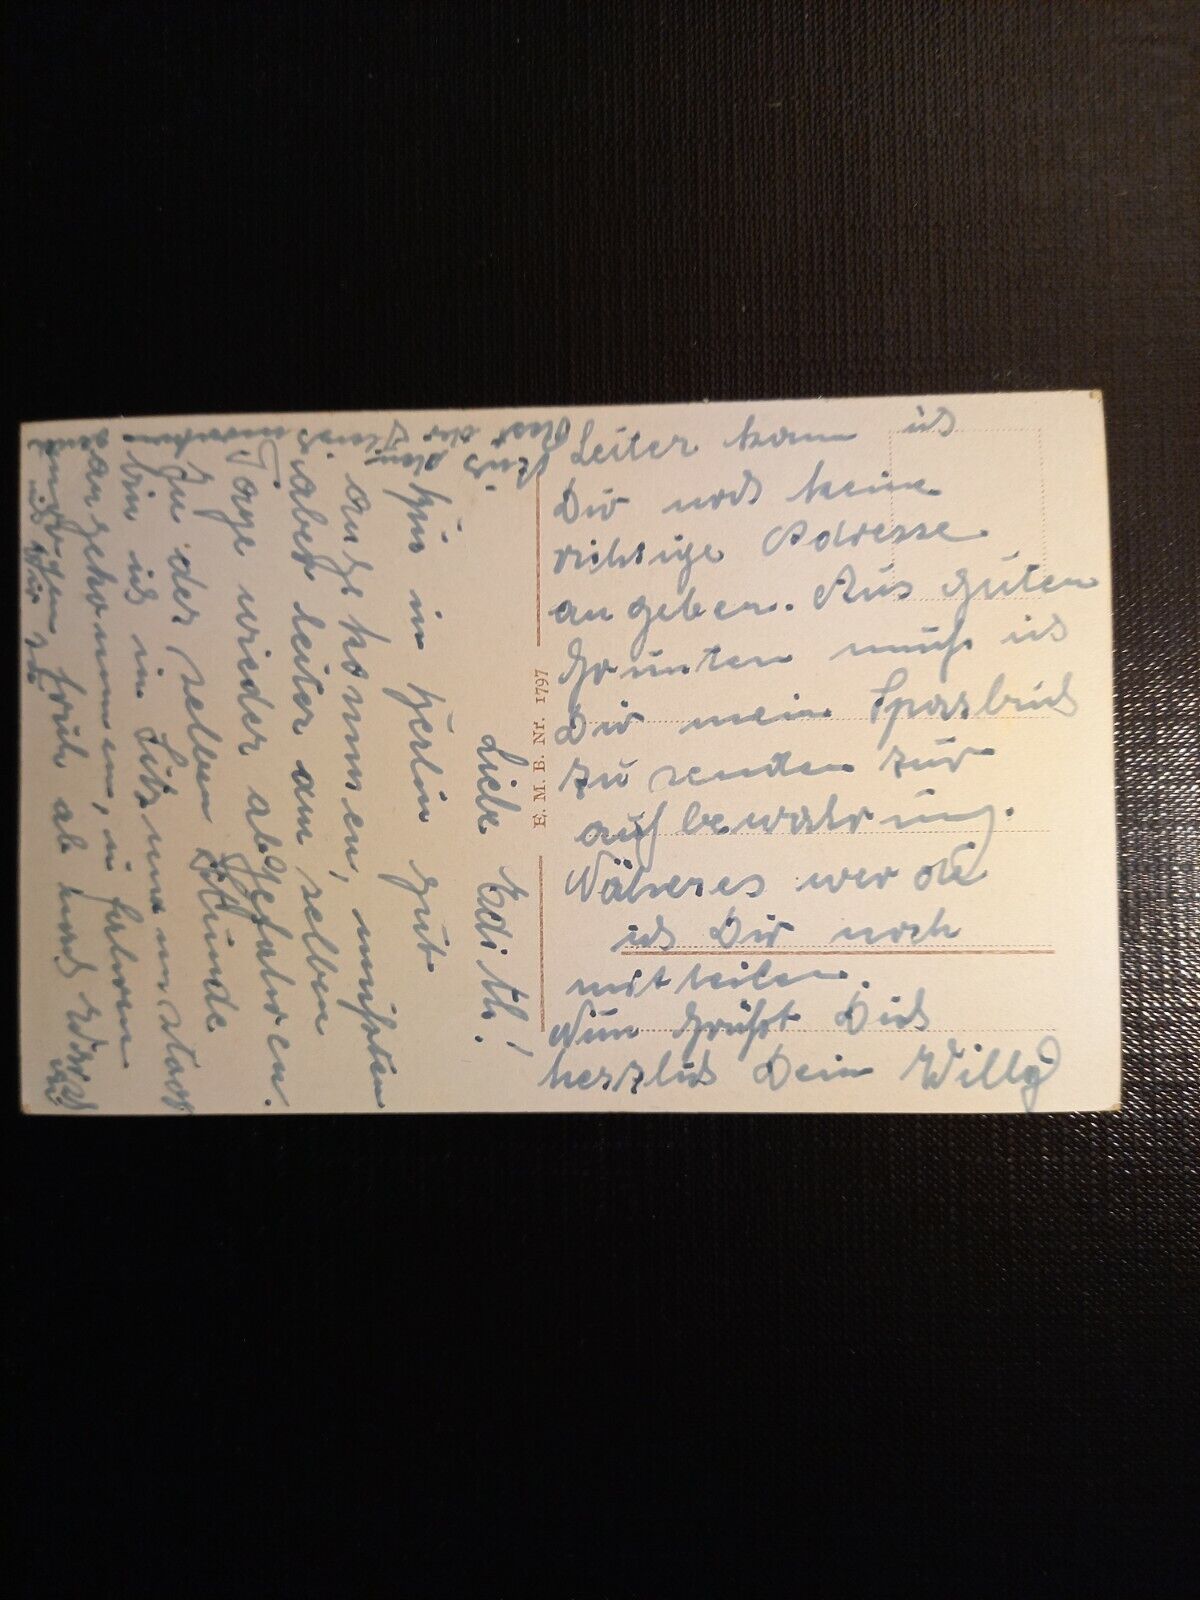 Liebe Edith!
Bin in Berlin gut
angekommen, mußten
aber leiter am selben
Tage wieder abgefahren.
Zu der selben Stunde
bin ich in Litzmannstadt
angekommen, fahren
morgen früh ab nach
Leiter kann ich
Dir noch keine
richtige Adresse
angeben. Aus guten
Grunten muß ich
Dir mein Sparbuch
zu senden zur
aufbewahrung.
Näheres werde
ich Dir noch
mitteilen.
Nun Grüßt Dich
herzlich Dein Willy
E. M. B. Nr. 1797